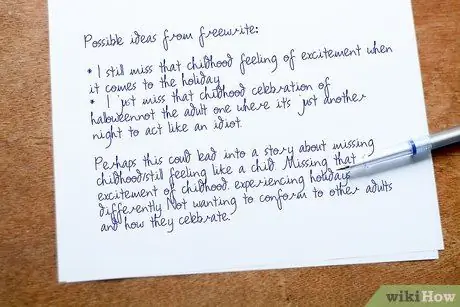 Possible ideas from freewrite:
* I still miss that childhood feeling of excitement when
it comes to the holiday
* I just miss that childhood celebration of
haloweennot the adult one where its just another
night to act like an idiot.
Perhaps this could lead into a story about missing
childhood/still feeling like a child. Missing that
excitement of childhood. experiencing holidays
differently. Not wanting to conform to other adults
and how they celebrate.
wikiHow